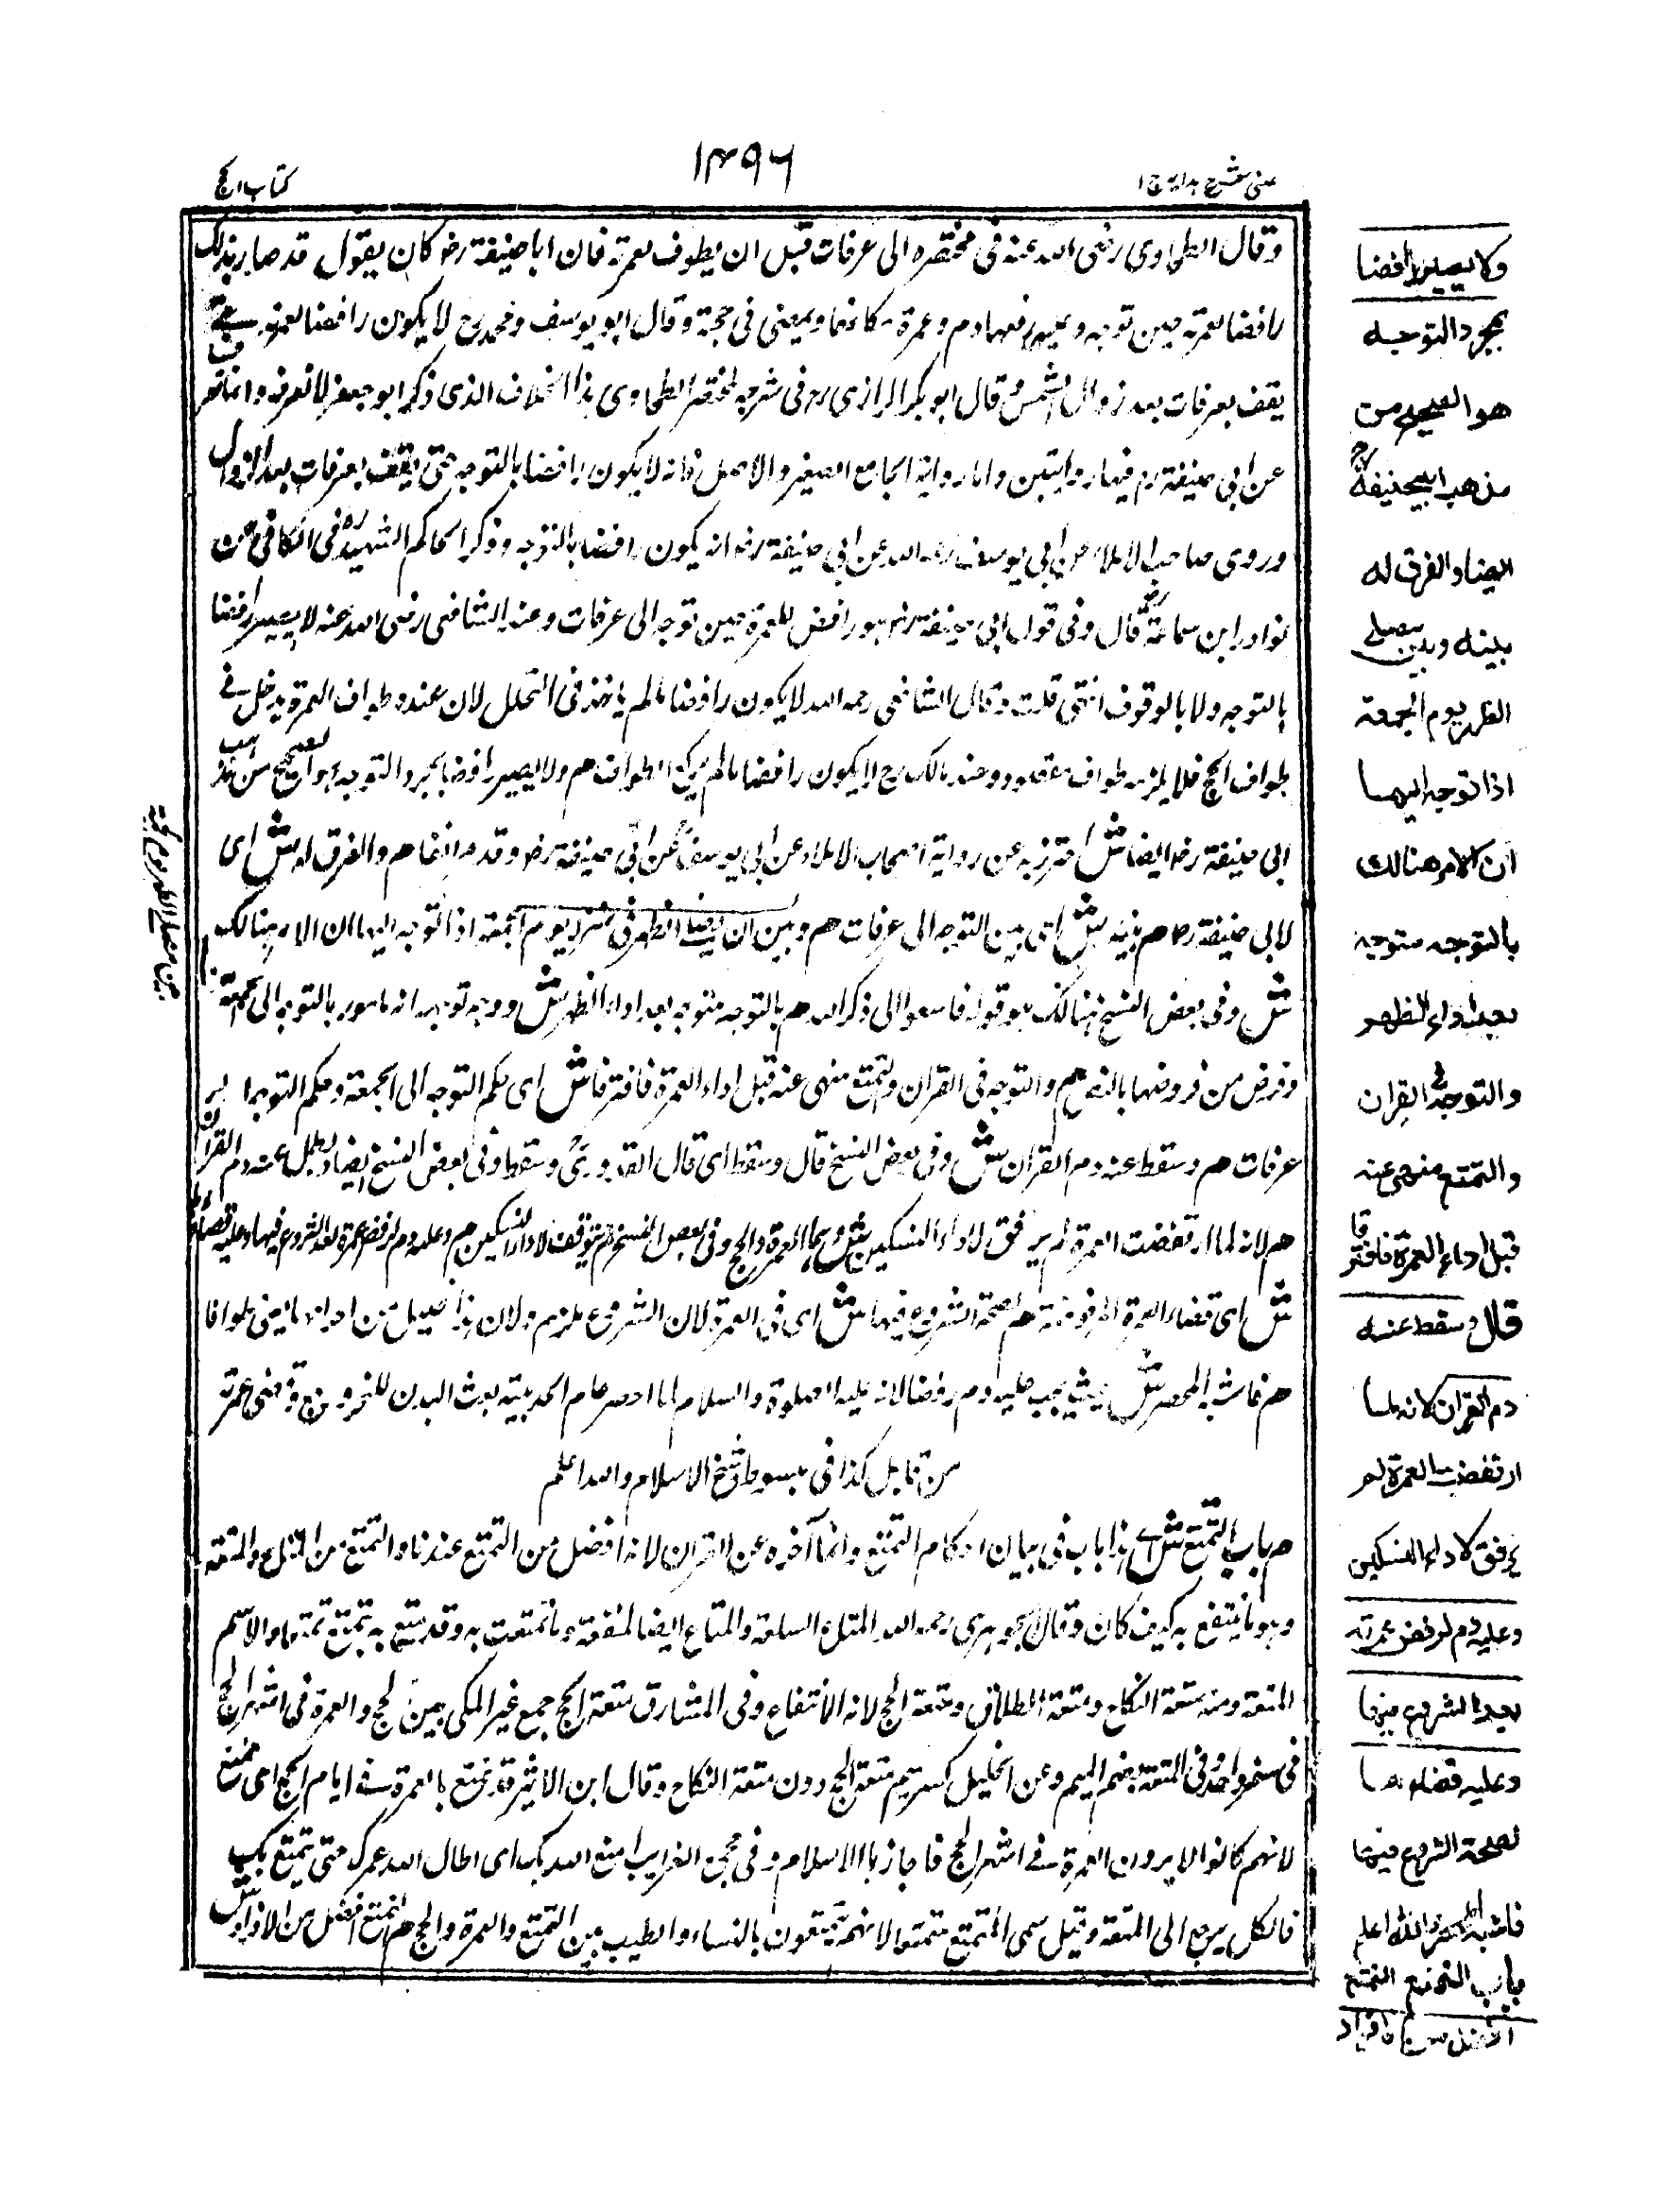 عینی شرح ہدایہ ج ۱
۱۴۹۶
کتاب الحج
وقال الطحاوی رضی اللہ عنہ فی مختصرہ الی عرفات قبل ان یطوف بعمرتہ فان ابا حنیفة رضہ کان یقول قد صار بذلک
رافضا بعمرتہ حین توجہ وعلیہ لرفضہا دم وعمرة مکانہا ویمضی فی حجتہ وقال ابو یوسف ومحمد رح لا یکون رافضا لعمرتہ حتی
یقف بعرفات بعد زوال الشمس قال ابو بکر الرازی رح فی شرحہ لمختصر الطحاوی ہذا الخلاف الذی ذکر ابو جعفر لا نعرفہ وانما نعرف
عن ابی حنیفة رح فیہا روایتین واما روایة الجامع الصغیر والاصل فانہ لا یکون رافضا بالتوجہ حتی یقف بعرفات بعد الزوال
وروی صاحب الاملاء عن ابی یوسف رحمہ اللہ عن ابی حنیفة رضہ انہ یکون رافضا بالتوجہ وذکر الحاکم الشہید رح فی الکافی عن
نوادر ابن سماعة قال وفی قول ابی حنیفة رضہ ہو رافض للعمرة حین توجہ الی عرفات وعند الشافعی رضی اللہ عنہ لا یصیر رافضا
بالتوجہ ولا بالوقوف انتہی قلت وقال الشافعی رحمہ اللہ لا یکون رافضا مالم یاخذ فی التحلل لان عندہ طواف العمرة یدخل فی
طواف الحج فلا یلزمہ طواف مقصود وعند مالک رح لا یکون رافضا مالم یرکع الطواف ھم ولا یصیر رافضا بمجرد التوجہ ہو الصحیح من مذہب
ابی حنیفة رضہ ایضا ش احترز بہ عن روایة اصحاب الاملاء عن ابی یوسف عن ابی حنیفة رضہ وقد مر انفا ھم والفرق لہ ش ای
لابی حنیفة رضہ ھم بینہ ش ای بین التوجہ الی عرفات ھم وبین ان یصلی الظہر فی منزلہ یوم الجمعة اذا توجہ الیہا ان الامر ہنالک
ش وفی بعض النسخ ہنالک ہو قولہ فاسعوا الی ذکر اللہ ھم بالتوجہ متوجہ بعد اداء الظہر ش ووجہ توجہہ انہ مامور بالتوجہ الی الجمعة
وفرض من فروضہا بالنص ھم والتوجہ فی القران والتمتع منہی عنہ قبل اداء العمرة فافترقا ش ای حکم التوجہ الی الجمعة وحکم التوجہ الی
عرفات ھم وسقط عنہ دم القران ش وفی بعض النسخ قال وسقط ای قال القدوری وسقط وفی بعض النسخ ایضا وبطل عنہ دم القران
ھم لانہ لما ارتفضت العمرة لم یرفق لاداء النسکین ش وہما العمرة والحج وفی بعض النسخ لم یوفق لاداء النسکین ھم وعلیہ دم لرفض عمرتہ بعد الشروع فیہا وعلیہ قضاؤہا
ش ای قضاء العمرة المرفوضة ھم لصحة الشروع فیہا ش ای فی العمرة لان الشروع ملزم ولان ہذا تحلل من احرامہ
ھم فاشبہ المحصر ش حیث یجب علیہ دم رفضا لانہ علیہ الصلوة والسلام لما احصر عام الحدیبیة بعث البدن للنحر وقضی عمرتہ
من قابل کذا فی مبسوط شیخ الاسلام واللہ اعلم
ھم باب التمتع ش ای ہذا باب فی بیان احکام التمتع وانما آخرہ عن القران لانہ افضل من التمتع عندنا والتمتع من المتاع والمتعة
وہو ما ینتفع بہ کیف کان وقال الجوہری رحمہ اللہ المتاع السلعة والمتاع ایضا المنفعة وما تمتعت بہ وقد متع بہ یمتع والاسم
المتعة ومنہ متعة النکاح ومتعة الطلاق ومتعة الحج لانہ الانتفاع وفی المشارق متعة الحج جمع غیر المکی بین الحج والعمرة فی اشہر الحج
فی سفر واحد وفی المتعة بضم المیم وعن الخلیل کسر میم متعة الحج دون متعة النکاح وقال ابن الاثیر تمتع بالعمرة فی ایام الحج ای انتفع
لانہم کانوا لا یرون العمرة فی اشہر الحج فاجازہا الاسلام وفی مجمع الغرایب امتع اللہ بک ای اطال اللہ عمرک حتی یتمتع بک
فالکل یرجع الی المتعة وقیل سمی المتمتع متمتعا لانہم یتمتعون بالنساء والطیب بین التمتع والعمرة والحج ھم التمتع افضل من الافراد ش
ولا یصیر رافضا
بمجرد التوجہ
هو الصحیح من
مذهب ابی حنیفة رح
ایضا والفرق له
بینه وبین مصلی
الظهر یوم الجمعة
اذا توجه الیها
ان الامر هنالك
بالتوجه متوجه
بعد اداء الظهر
والتوجه فی القران
والتمتع منهی عنه
قبل اداء العمرة فافترقا
قال وسقط عنه
دم القران لانه لما
ارتفضت العمرة لم
یرفق لاداء النسکین
وعلیه دم لرفض عمرته
بعد الشروع فیها
وعلیه قضاؤها
لصحة الشروع فیها
فاشبه المحصر والله اعلم
باب التمتع التمتع
افضل من الافراد